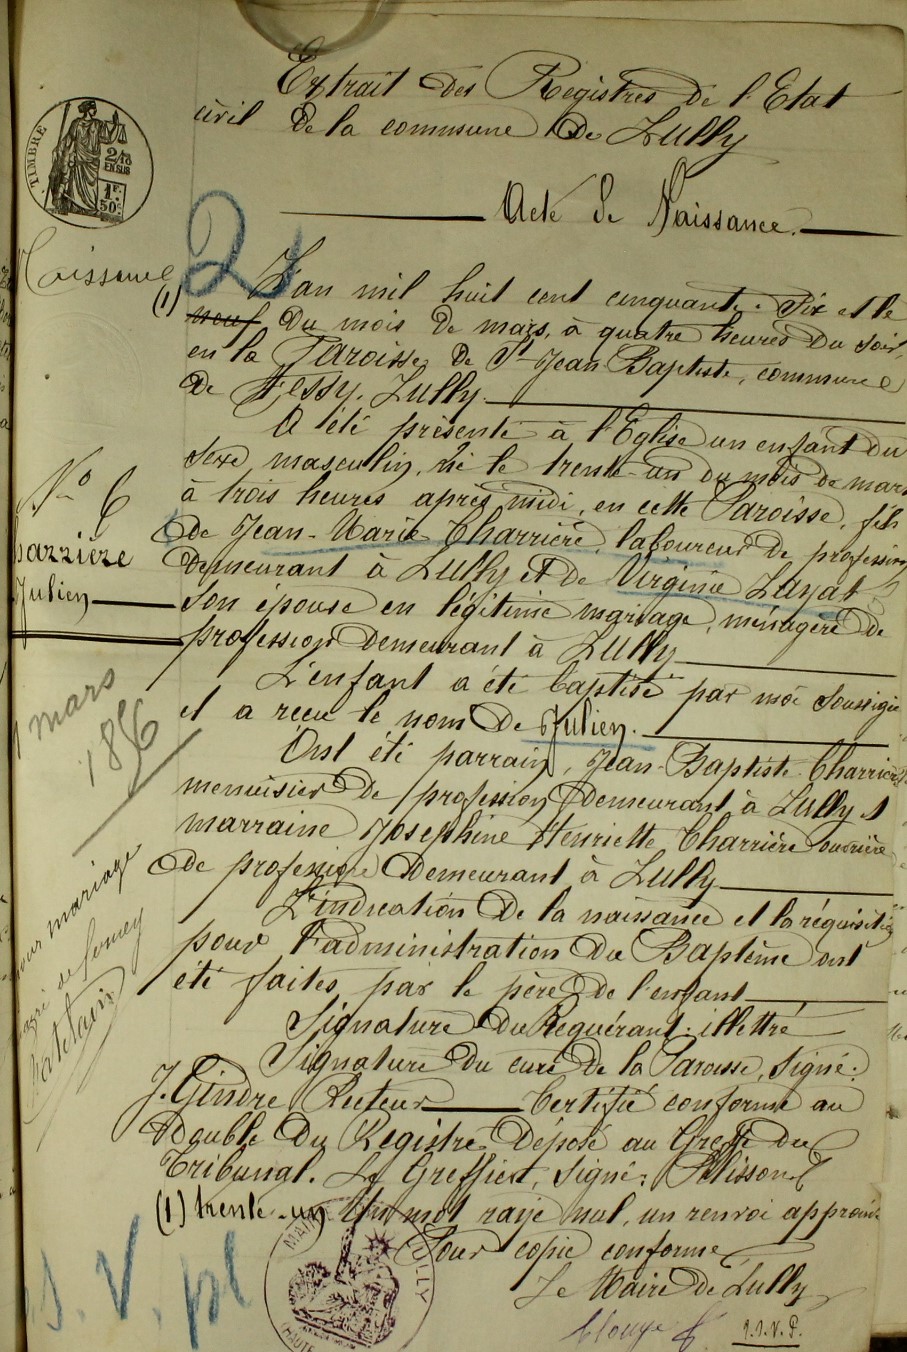 Extrait des Registres de l'Etat
civil de la commune de Lully
TIMBRE
2/10
EN SUS
1F.
50c
Acte de Naissance.
2
Naissance
(1) L'an mil huit cent cinquante-six et le
neuf du mois de mars, à quatre heures du soir,
en la Paroisse de St Jean-Baptiste, commune
de Fessy-Lully.
A été présenté à l'Eglise un enfant du
sexe masculin, né le trente-un du mois de mars
à trois heures après midi, en cette Paroisse, fils
No 6
de Jean-Marie Charrière, laboureur de profession,
Charrière
demeurant à Lully et de Virginie
Julien
son épouse en légitime mariage, ménagère de
profession demeurant à Lully
L'enfant a été baptisé par moi soussigné
mars
1856
et a reçu le nom de Julien.
Ont été parrain, Jean-Baptiste Charrière
menuisier de profession demeurant à Lully et
marraine Josephine Henriette Charrière ouvrière
de profession demeurant à Lully
pour mariage
L'indication de la naissance et la réquisition
pour l'administration du Baptême ont
été faites par le père de l'enfant
Signature du Requérant: illettré
Signature du curé de la Paroisse, Signé:
J. Gindre Recteur Certifié conforme au
double du Registre déposé au Greffe du
Tribunal. Le Greffier, Signé: Pélisson
(1) trente-un Un mot rayé nul, un renvoi approuvé
Pour copie conforme
Le Maire de Lully
MAIRIE LULLY
(HAUTE
S.V.pl
T.S.V.P.